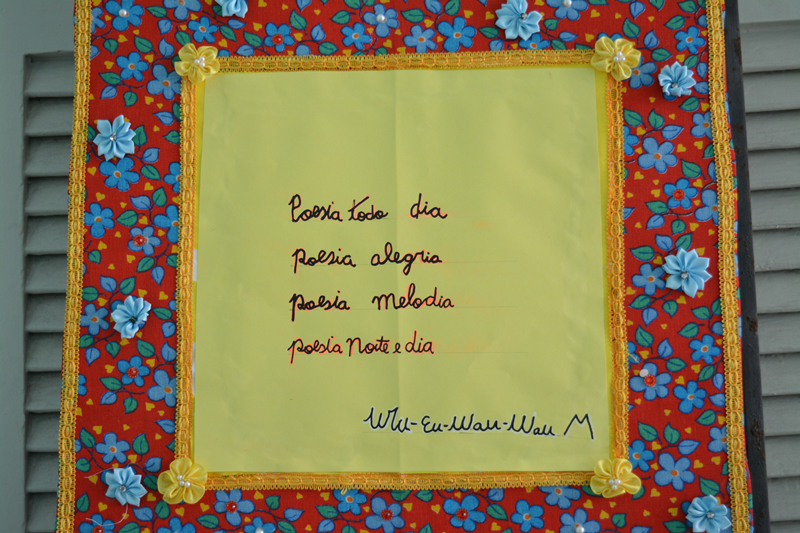 Poesia todo dia
poesia alegria
poesia melodia
poesia Noite e dia
M